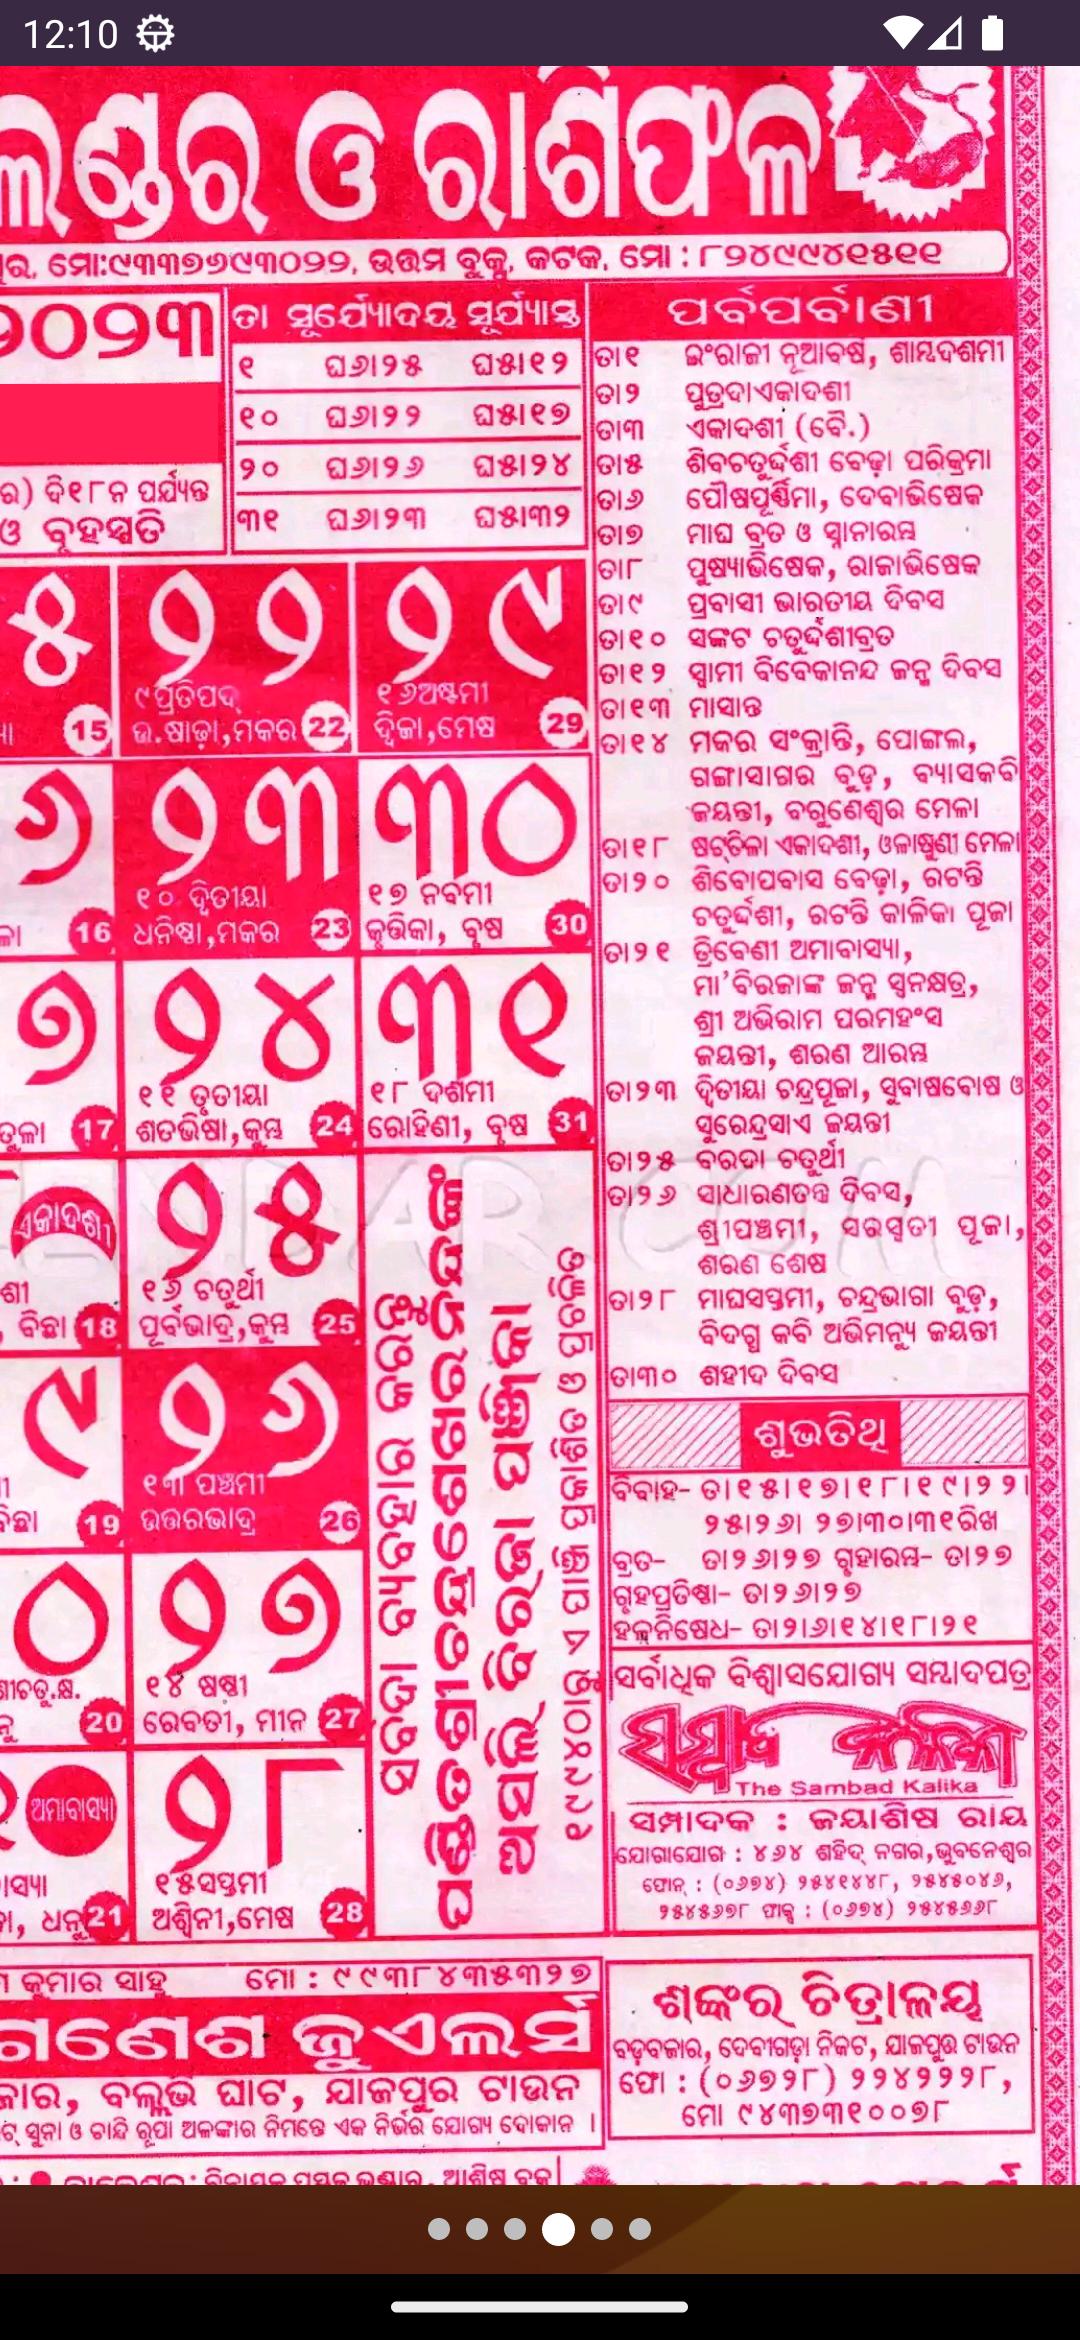 12:10
ଲଣ୍ଡର ଓ ରାଶିଫଳ
ମୋ:୯୩୩୭୬୯୩୦୨୨, ଉତ୍ତମ ବୁକ୍ସ, କଟକ, ମୋ : ୮୨୪୯୯୪୧୫୧୧
୨୦୨୩
ର) ଦି୧୮ନ ପର୍ଯ୍ୟନ୍ତ
ଓ ବୃହସ୍ପତି
ତା ସୂର୍ଯ୍ୟୋଦୟ ସୂର୍ଯ୍ୟାସ୍ତ
୧ ଘ୬।୨୫ ଘ୫।୧୨
୧୦ ଘ୬।୨୨ ଘ୫।୧୭
୨୦ ଘ୬।୨୬ ଘ୫।୨୪
୩୧ ଘ୬।୨୩ ଘ୫।୩୨
ପର୍ବପର୍ବାଣୀ
ତା୧ ଇଂରାଜୀ ନୂଆବର୍ଷ, ଶାମ୍ବଦଶମୀ
ତା୨ ପୁତ୍ରଦାଏକାଦଶୀ
ତା୩ ଏକାଦଶୀ (ବୈ.)
ତା୫ ଶିବଚତୁର୍ଦ୍ଦଶୀ ବେଢ଼ା ପରିକ୍ରମା
ତା୬ ପୌଷପୂର୍ଣ୍ଣିମା, ଦେବାଭିଷେକ
ତା୭ ମାଘ ବ୍ରତ ଓ ସ୍ନାନାରମ୍ଭ
ତା୮ ପୁଷ୍ୟାଭିଷେକ, ରାଜାଭିଷେକ
ତା୯ ପ୍ରବାସୀ ଭାରତୀୟ ଦିବସ
ତା୧୦ ସଙ୍କଟ ଚତୁର୍ଦ୍ଦଶୀବ୍ରତ
ତା୧୨ ସ୍ୱାମୀ ବିବେକାନନ୍ଦ ଜନ୍ମ ଦିବସ
ତା୧୩ ମାସାନ୍ତ
ତା୧୪ ମକର ସଂକ୍ରାନ୍ତି, ପୋଙ୍ଗଲ,
ଗଙ୍ଗାସାଗର ବୁଡ଼, ବ୍ୟାସକବି
ଜୟନ୍ତୀ, ବରୁଣେଶ୍ୱର ମେଳା
ତା୧୮ ଷଟ୍‌ତିଳା ଏକାଦଶୀ, ଓଳାଷୁଣୀ ମେଳା
ତା୨୦ ଶିବୋପବାସ ବେଢ଼ା, ରଟନ୍ତି
ଚତୁର୍ଦ୍ଦଶୀ, ରଟନ୍ତି କାଳିକା ପୂଜା
ତା୨୧ ତ୍ରିବେଣୀ ଅମାବାସ୍ୟା,
ମା'ବିରଜାଙ୍କ ଜନ୍ମ ସ୍ୱନକ୍ଷତ୍ର,
ଶ୍ରୀ ଅଭିରାମ ପରମହଂସ
ଜୟନ୍ତୀ, ଶରଣ ଆରମ୍ଭ
ତା୨୩ ଦ୍ୱିତୀୟା ଚନ୍ଦ୍ରପୂଜା, ସୁବାଷବୋଷ ଓ
ସୁରେନ୍ଦ୍ରସାଏ ଜୟନ୍ତୀ
ତା୨୫ ବରଦା ଚତୁର୍ଥୀ
ତା୨୬ ସାଧାରଣତନ୍ତ୍ର ଦିବସ,
ଶ୍ରୀପଞ୍ଚମୀ, ସରସ୍ୱତୀ ପୂଜା,
ଶରଣ ଶେଷ
ତା୨୮ ମାଘସପ୍ତମୀ, ଚନ୍ଦ୍ରଭାଗା ବୁଡ଼,
ବିଦଗ୍ଧ କବି ଅଭିମନ୍ୟୁ ଜୟନ୍ତୀ
ତା୩୦ ଶହୀଦ ଦିବସ
ଶୁଭତିଥି
ବିବାହ- ତା୧୫।୧୭।୧୮।୧୯।୨୨।
୨୫।୨୬। ୨୭।୩୦।୩୧ରିଖ
ବ୍ରତ- ତା୨୬।୨୭ ଗୃହାରମ୍ଭ- ତା୨୭
ଗୃହପ୍ରତିଷ୍ଠା- ତା୨୬।୨୭
ହଳନିଷେଧ- ତା୨।୬।୧୪।୧୮।୨୧
ସର୍ବାଧିକ ବିଶ୍ୱାସଯୋଗ୍ୟ ସମ୍ବାଦପତ୍ର
ସମ୍ବାଦ କଳିକା
The Sambad Kalika
ସମ୍ପାଦକ : ଜୟାଶିଷ ରାୟ
ଯୋଗାଯୋଗ : ୪୬୪ ଶହିଦ୍ ନଗର,ଭୁବନେଶ୍ୱର
ଫୋନ୍ : (୦୬୭୪) ୨୫୪୧୪୪୮, ୨୫୪୫୦୪୬,
୨୫୪୫୬୭୮ ଫାକ୍ସ : (୦୬୭୪) ୨୫୪୫୬୬୮
୫ ୨୨ ୨୯
୯ପ୍ରତିପଦ୍ ୧୬ଅଷ୍ଟମୀ
15 ଉ.ଷାଢ଼ା,ମକର 22 ଦ୍ୱିଜା,ମେଷ 29
୬ ୨୩ ୩୦
୧୦ ଦ୍ୱିତୀୟା ୧୭ ନବମୀ
16 ଧନିଷ୍ଠା,ମକର 23 କୃତ୍ତିକା, ବୃଷ 30
୭ ୨୪ ୩୧
୧୧ ତୃତୀୟା ୧୮ ଦଶମୀ
ତୁଳା 17 ଶତଭିଷା,କୁମ୍ଭ 24 ରୋହିଣୀ, ବୃଷ 31
ଏକାଦଶୀ ୨୫
ଶୀ ୧୬ ଚତୁର୍ଥୀ
, ବିଛା 18 ପୂର୍ବଭାଦ୍ର,କୁମ୍ଭ 25
୯ ୨୬
୧୩ ପଞ୍ଚମୀ
ବିଛା 19 ଉତ୍ତରଭାଦ୍ର 26
୦ ୨୭
୧୪ ଷଷ୍ଠୀ
20 ରେବତୀ, ମୀନ 27
ଅମାବାସ୍ୟା ୨୮
୧୫ସପ୍ତମୀ
ଧନୁ 21 ଅଶ୍ୱିନୀ,ମେଷ 28
ସର୍ବଦା ବ୍ୟବହାର କରନ୍ତୁ
ଅସଲି ବିରଜା ପଞ୍ଜିକା
୧୯୯୪ଠାରୁ ଏ ପାଞ୍ଜି ପ୍ରକାଶିତ ଓ ପ୍ରଚଳିତ
କୁମାର ସାହୁ ମୋ : ୯୯୩୮୪୩୫୩୨୭
ଗଣେଶ ଜୁଏଲର୍ସ
ଜାର, ବଲ୍ଲଭି ଘାଟ, ଯାଜପୁର ଟାଉନ
ସୁନା ଓ ଚାନ୍ଦି ରୂପା ଅଳଙ୍କାର ନିମନ୍ତେ ଏକ ନିର୍ଭର ଯୋଗ୍ୟ ଦୋକାନ ।
ଶଙ୍କର ଚିତ୍ରାଳୟ
ବଡ଼ବଜାର, ଦେବୀଗଡ଼ା ନିକଟ, ଯାଜପୁର ଟାଉନ
ଫୋ : (୦୬୭୨୮) ୨୨୪୨୨୨୮,
ମୋ ୯୪୩୭୩୧୦୦୭୮